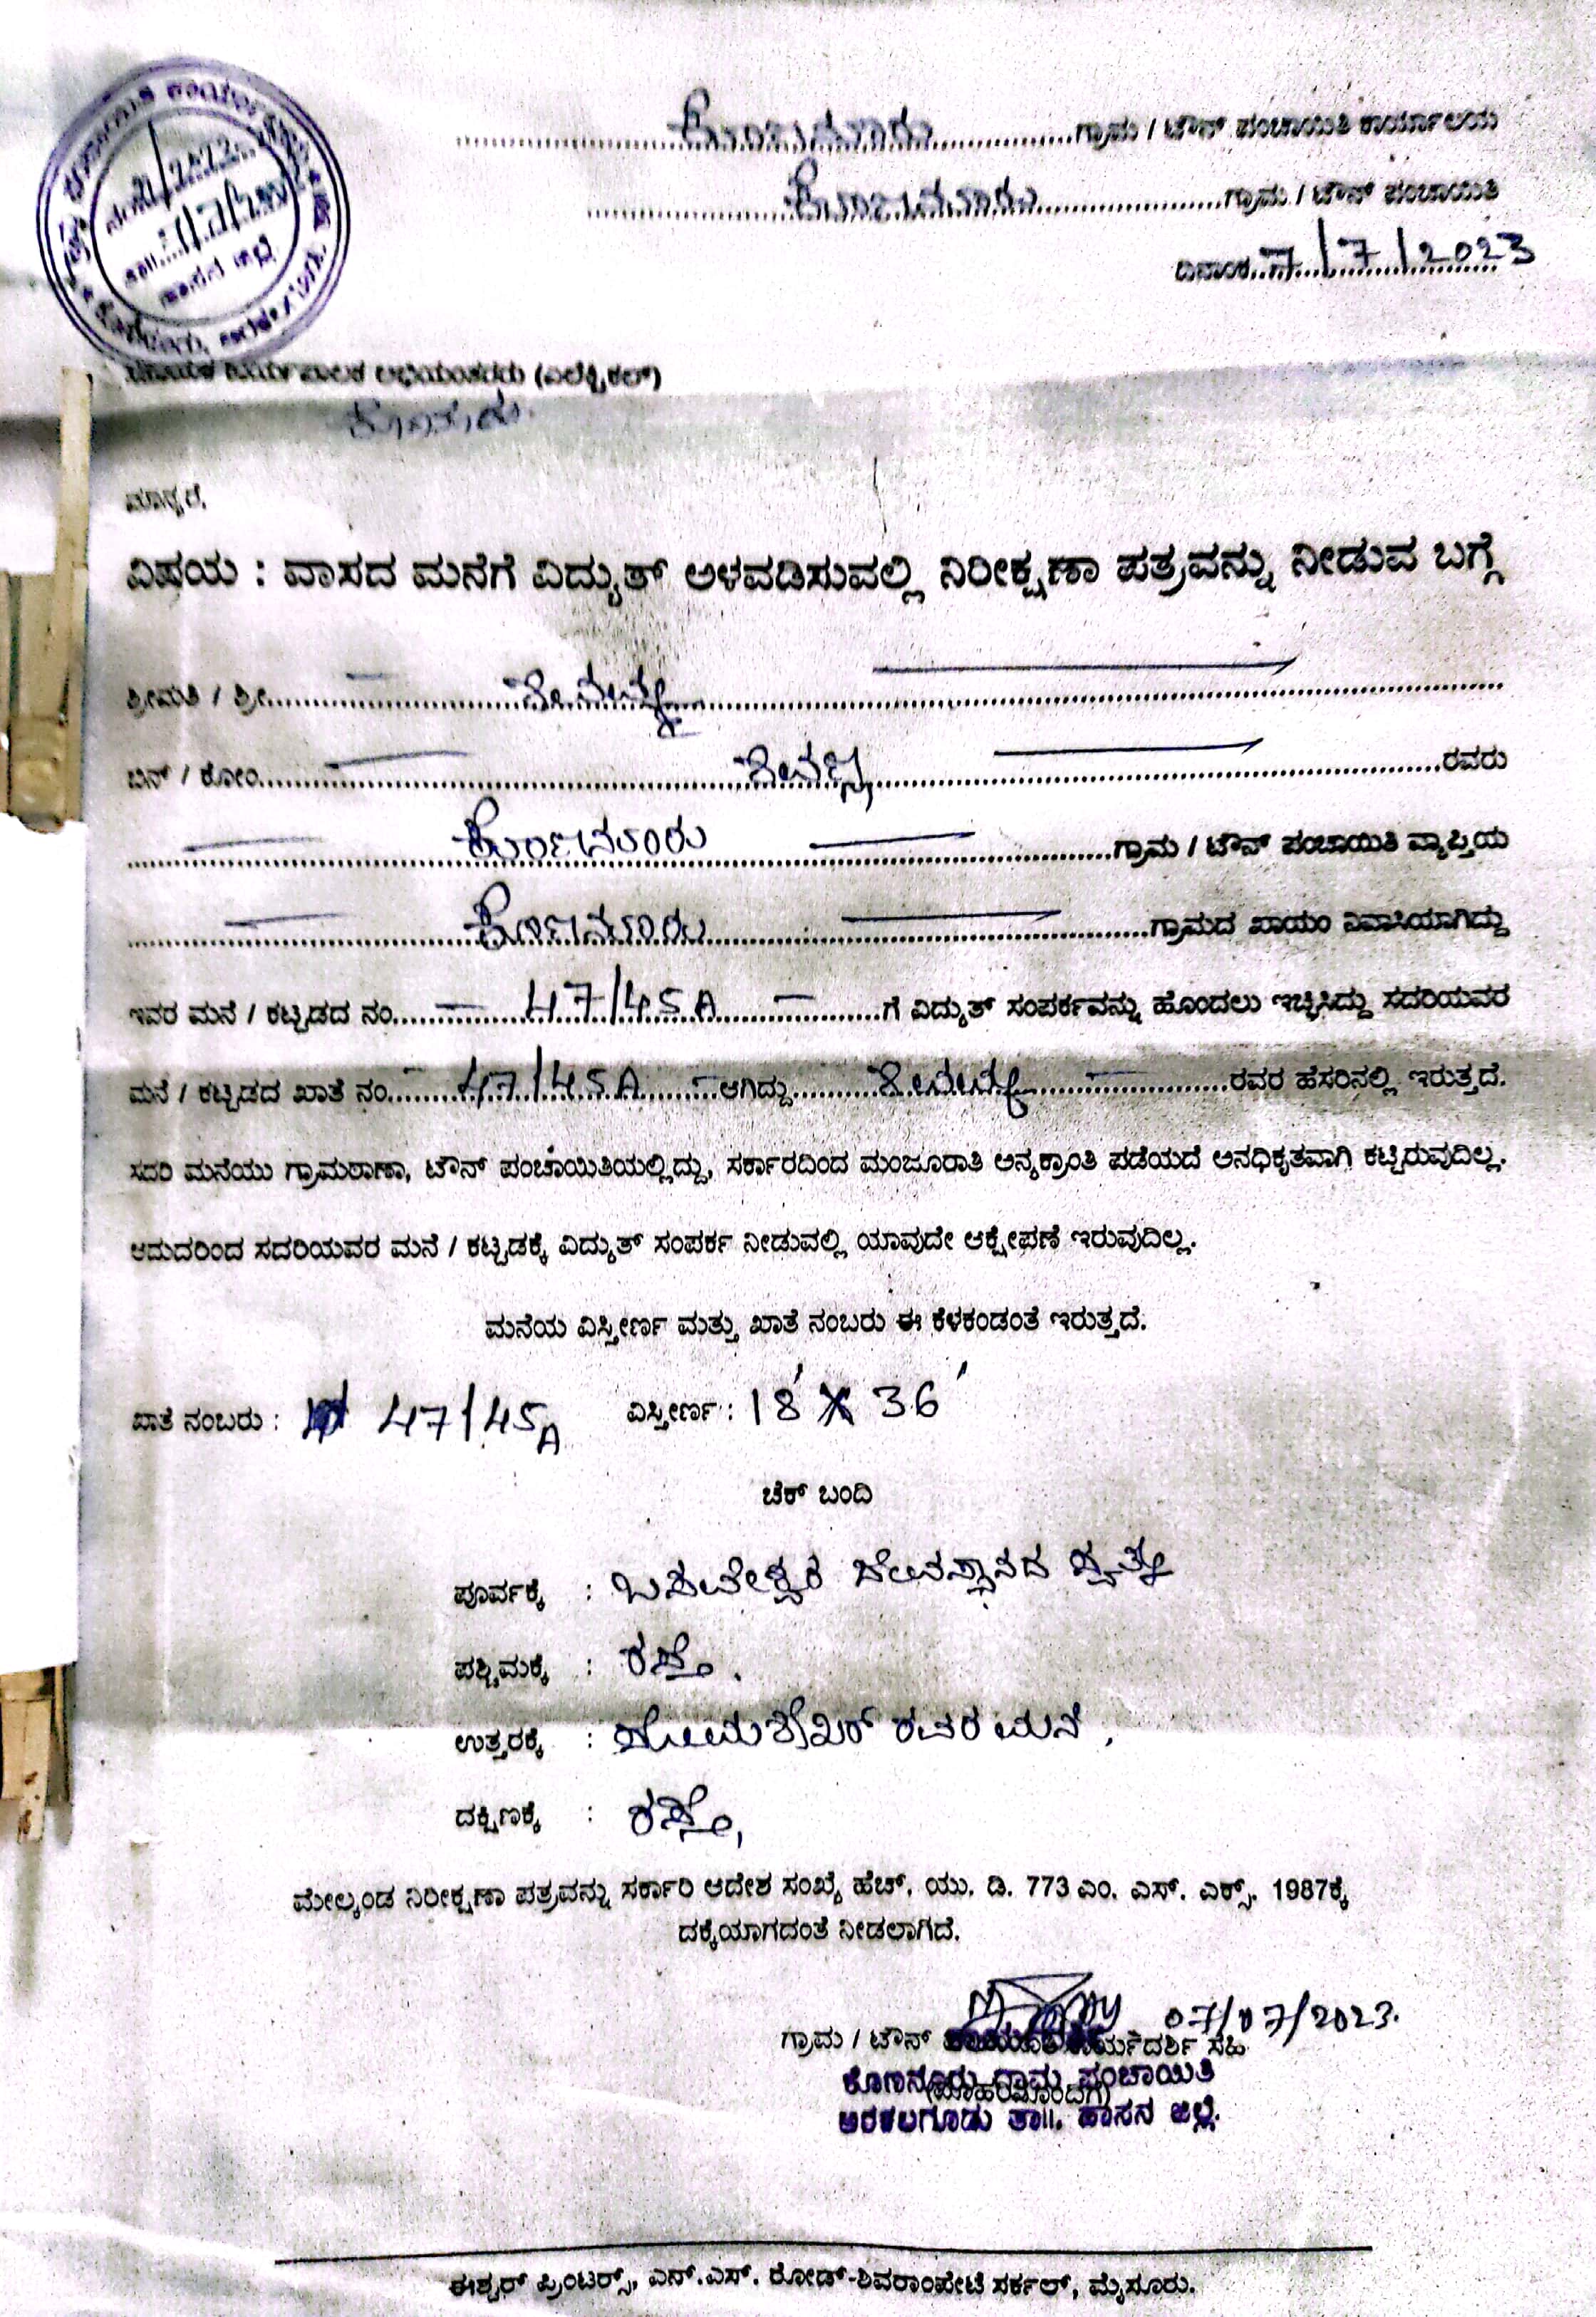 ಕೊಣನೂರು ಗ್ರಾಮ / ಟೌನ್ ಪಂಚಾಯಿತಿ ಕಾರ್ಯಾಲಯ
ಕೊಣನೂರು ಗ್ರಾಮ / ಟೌನ್ ಪಂಚಾಯಿತಿ
ದಿನಾಂಕ 7/7/2023
ಅಭಿಯಂತರರು (ಎಲೆಕ್ಟ್ರಿಕಲ್)
ಮಾನ್ಯರೆ,
ವಿಷಯ : ವಾಸದ ಮನೆಗೆ ವಿದ್ಯುತ್ ಅಳವಡಿಸುವಲ್ಲಿ ನಿರೀಕ್ಷಣಾ ಪತ್ರವನ್ನು ನೀಡುವ ಬಗ್ಗೆ
ಶ್ರೀಮತಿ / ಶ್ರೀ
ಬಿನ್ / ಕೋಂ ಶಿವಣ್ಣ ರವರು
ಕೊಣನೂರು ಗ್ರಾಮ / ಟೌನ್ ಪಂಚಾಯಿತಿ ವ್ಯಾಪ್ತಿಯ
ಕೊಣನೂರು ಗ್ರಾಮದ ಖಾಯಂ ನಿವಾಸಿಯಾಗಿದ್ದು
ಇವರ ಮನೆ / ಕಟ್ಟಡದ ನಂ. 47/45A ಗೆ ವಿದ್ಯುತ್ ಸಂಪರ್ಕವನ್ನು ಹೊಂದಲು ಇಚ್ಛಿಸಿದ್ದು ಸದರಿಯವರ
ಮನೆ / ಕಟ್ಟಡದ ಖಾತೆ ನಂ. 47/45A ಆಗಿದ್ದು ರವರ ಹೆಸರಿನಲ್ಲಿ ಇರುತ್ತದೆ.
ಸದರಿ ಮನೆಯು ಗ್ರಾಮಠಾಣಾ, ಟೌನ್ ಪಂಚಾಯಿತಿಯಲ್ಲಿದ್ದು, ಸರ್ಕಾರದಿಂದ ಮಂಜೂರಾತಿ ಅನ್ಯಕ್ರಾಂತಿ ಪಡೆಯದೆ ಅನಧಿಕೃತವಾಗಿ ಕಟ್ಟಿರುವುದಿಲ್ಲ.
ಆದುದರಿಂದ ಸದರಿಯವರ ಮನೆ / ಕಟ್ಟಡಕ್ಕೆ ವಿದ್ಯುತ್ ಸಂಪರ್ಕ ನೀಡುವಲ್ಲಿ ಯಾವುದೇ ಆಕ್ಷೇಪಣೆ ಇರುವುದಿಲ್ಲ.
ಮನೆಯ ವಿಸ್ತೀರ್ಣ ಮತ್ತು ಖಾತೆ ನಂಬರು ಈ ಕೆಳಕಂಡಂತೆ ಇರುತ್ತದೆ.
ಖಾತೆ ನಂಬರು : 47/45A ವಿಸ್ತೀರ್ಣ : 18' X 36'
ಚೆಕ್ ಬಂದಿ
ಪೂರ್ವಕ್ಕೆ : ಬಸವೇಶ್ವರ ದೇವಸ್ಥಾನದ ಸ್ವತ್ತು
ಪಶ್ಚಿಮಕ್ಕೆ : ರಸ್ತೆ.
ಉತ್ತರಕ್ಕೆ : ಸೋಮಶೇಖರ್ ರವರ ಮನೆ,
ದಕ್ಷಿಣಕ್ಕೆ : ರಸ್ತೆ,
ಮೇಲ್ಕಂಡ ನಿರೀಕ್ಷಣಾ ಪತ್ರವನ್ನು ಸರ್ಕಾರಿ ಆದೇಶ ಸಂಖ್ಯೆ ಹೆಚ್. ಯು. ಡಿ. 773 ಎಂ. ಎಸ್. ಎಕ್ಸ್. 1987ಕ್ಕೆ
ದಕ್ಕೆಯಾಗದಂತೆ ನೀಡಲಾಗಿದೆ.
07/07/2023.
ಗ್ರಾಮ / ಟೌನ್ ಕಾರ್ಯದರ್ಶಿ ಸಹಿ
ಕೊಣನೂರು ಗ್ರಾಮ ಪಂಚಾಯಿತಿ
(ಮೊಹರಿನೊಂದಿಗೆ)
ಅರಕಲಗೂಡು ತಾ||. ಹಾಸನ ಜಿಲ್ಲೆ.
ಈಶ್ವರ್ ಪ್ರಿಂಟರ್ಸ್, ಎನ್.ಎಸ್. ರೋಡ್-ಶಿವರಾಂಪೇಟೆ ಸರ್ಕಲ್, ಮೈಸೂರು.